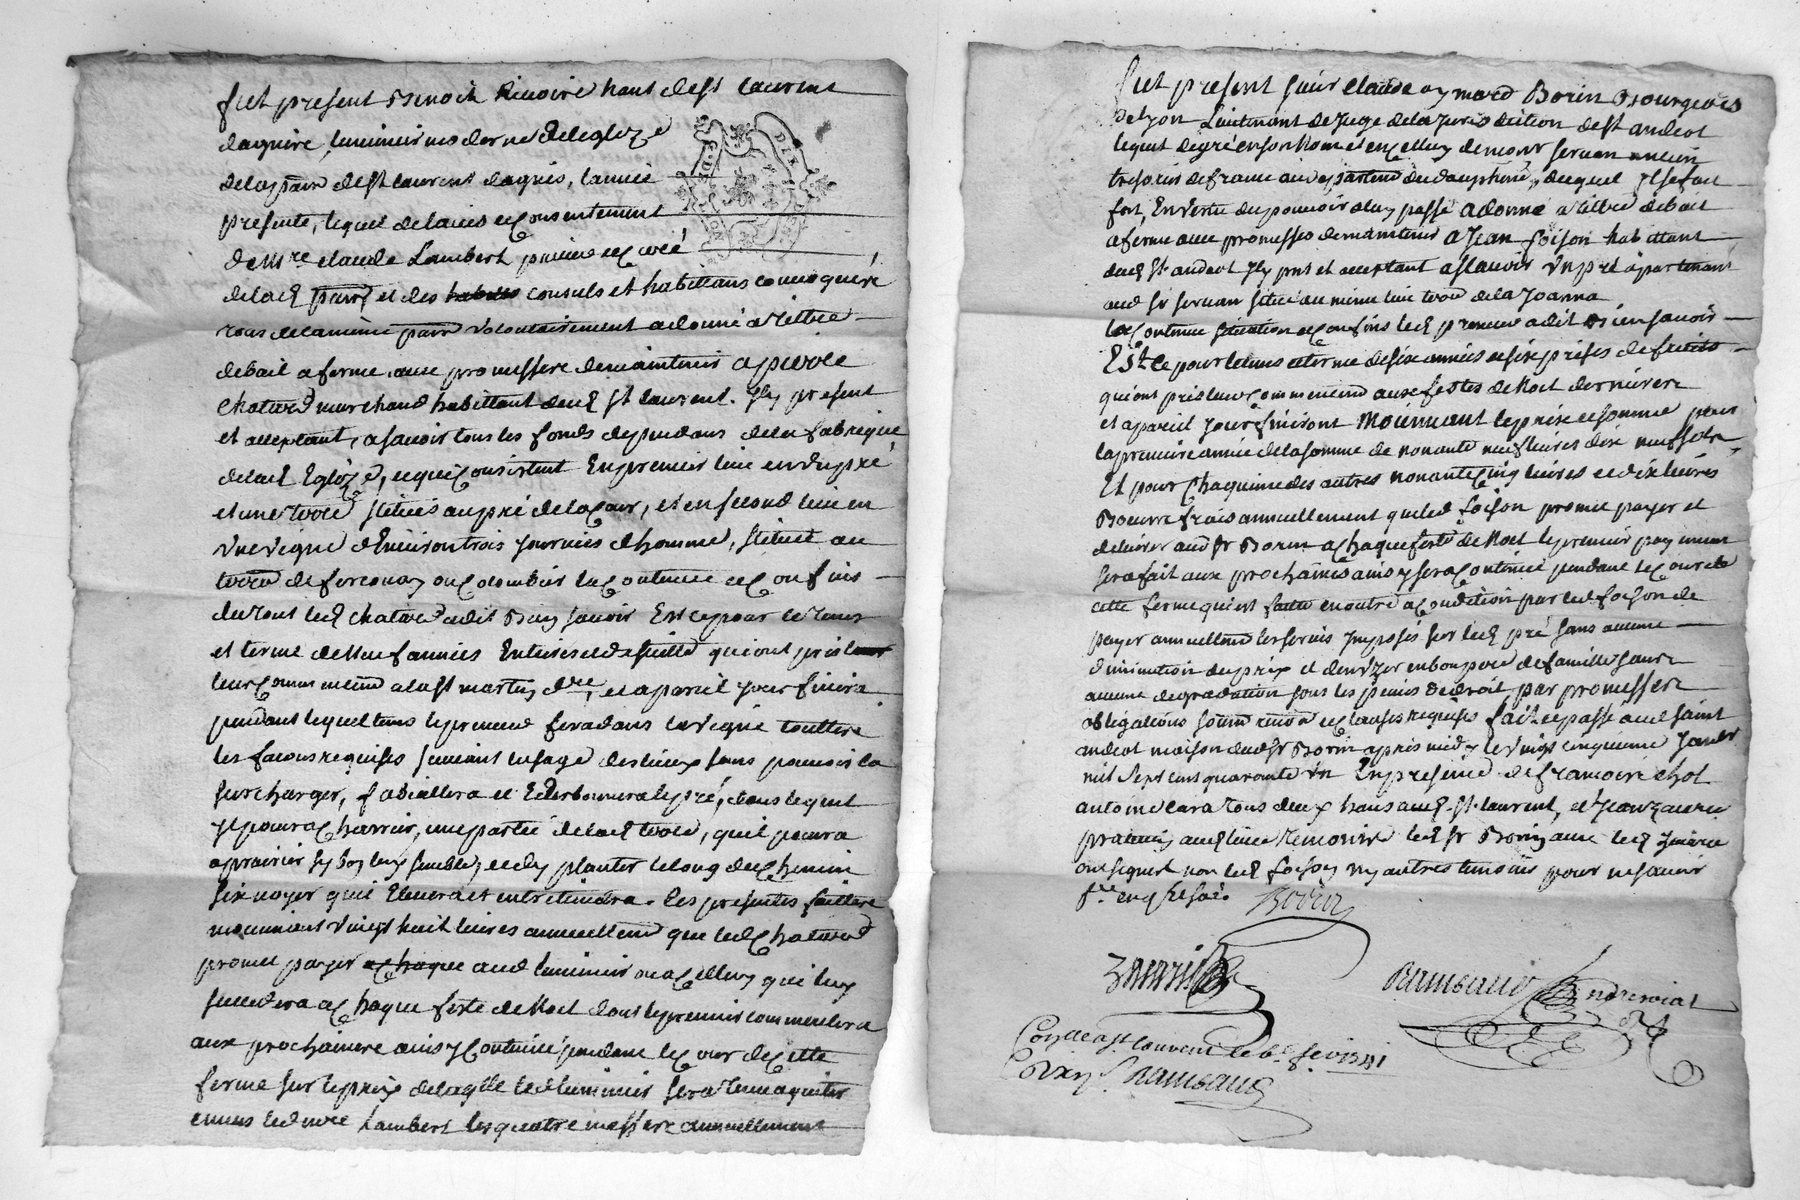 fut present Benoit Rivoire hant de st laurent
dagnire, luminier moderne de leglize
de la parr de st laurent dagnis, lannée
presente, lequel de lavis et consentement
de Mre claude Lambert prieur et curé
de lad parr et des habita consuls et habittans comoquéré
tous de la meme parr volontairement a donné a tiltre
de bail a ferme avec promesse de maintenir a pierre
Chatard marchand habittant aud st laurent. Jcy present
et acceptant, a scavoir tous les fonds dependans de la fabrique
de lad Eglize, et qui consistent En premier lieu en du pré
et une terre scitués au pré de la cour, et en second lieu en
Une vigne d'Environ trois journées d'homme, scituée au
terroir de la contenue et confins
du tout led Chatard a dit bien scavoir Est ce pour le tems
et terme de Neuf années Entieres et de suitte qui ont pris leur
leur commencemt a la st martin dre, et a pareil jour finira
pendant lequel tems le preneur fera dans la vigne touttes
les facons requises suivant lusage des lieux sans pouvoir la
surcharger, fabiallera et Enterbonnera le pré, dans lequel
Jl pourra charrier, une partie de lad terre, quil pourra
aprairier sy bon luy semble, et d'y planter le long du chemin
six noyer quil Elevera et entretiendra. Les presentes faittes
moiennant vingt huit livres annuellemt que led Chatard
promet payer a chaque aud luminier ou a celluy qui luy
succedera a chaque feste de Noel dont le premier commencera
aux prochaines ainsy continué pendant le cours de cette
ferme sur le prix de laqlle led luminier sera tenu aquitter
envers led mre Lambert les quatre messes annuellement
fut present sieur claude aymard Borin Bourgeois
de lyon Lieutenant de Juge de la Jurisdiction de st andeol
lequel de gré en son Nom et en celluy de monr servan ancien
tresorier de france au departemt du dauphiné, duquel Jl se fait
fort, En vertu du pouvoir a luy passé a donné a tiltre de bail
a ferme avec promesses de maintenir a Jean foison habittant
dud st andeol Jcy pnt et acceptant a scavoir Un pré apartenant
aud sr servan scitué au meme lieu terroir de la Joanna
la contenue scituation et confins led preneur a dit bien scavoir
Est ce pour le tems et terme de six années et six prises de fruits
qui ont pris leur commencemt aux festes de Noel dernieres
et a pareil jour finiront Moiennant le prix et somme pour
la premiere année de la somme de nonante neuf livres dix neuf sols
Et pour chaqune des autres nonante cinq livres et dix livres
Beurre frais annuellement que led foison promet payer et
delivrer aud sr Borin a chaque feste de Noel le premier payement
sera fait aux prochaines ainsy sera continué pendant le cours de
cette ferme qui est faitte en outre a condition par led foison de
payer annuellemt les servis Jmposés sur led pré sans aucune
diminution du prix et d'en uzer en bon pere de famille sans
aucune degradation sous les peines de droit par promesses
obligations soumn renon et clauses requises fait et passé aud saint
andeol maison dud sr Borin apres midy le vingt cinquieme Janvr
mil sept cens quarante un En presence de francois chol
antoine carra tous deux hans aud st laurent, et Jean zacarie
praticien aud lieu temoins led sr Borin avec led zacarie
ont signés non led foison ny autres temoins pour ne scavoir
de ce enq et soé.
Borin
Zacarie
Rambaud
Conlle a st laurent le 6e fev 1741
Rambaud